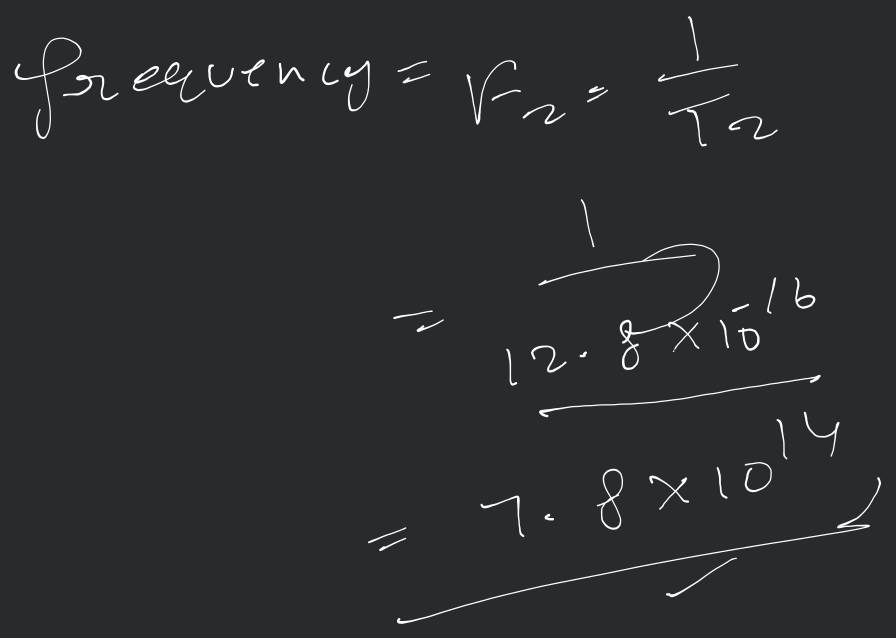 frequency = V₂ = 1/T₂
= 1/12.8 × 10⁻¹⁶
= 7.8 × 10¹⁴